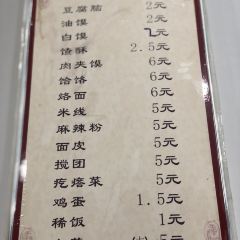 豆腐脑 2元
油馍 2元
白馍 2元
馇酥 2.5元
肉夹馍 6元
饸饹 6元
烙面 6元
米线 5元
麻辣粉 5元
面皮 5元
搅团 5元
疙瘩菜 5元
鸡蛋 1.5元
稀饭 1元
5元